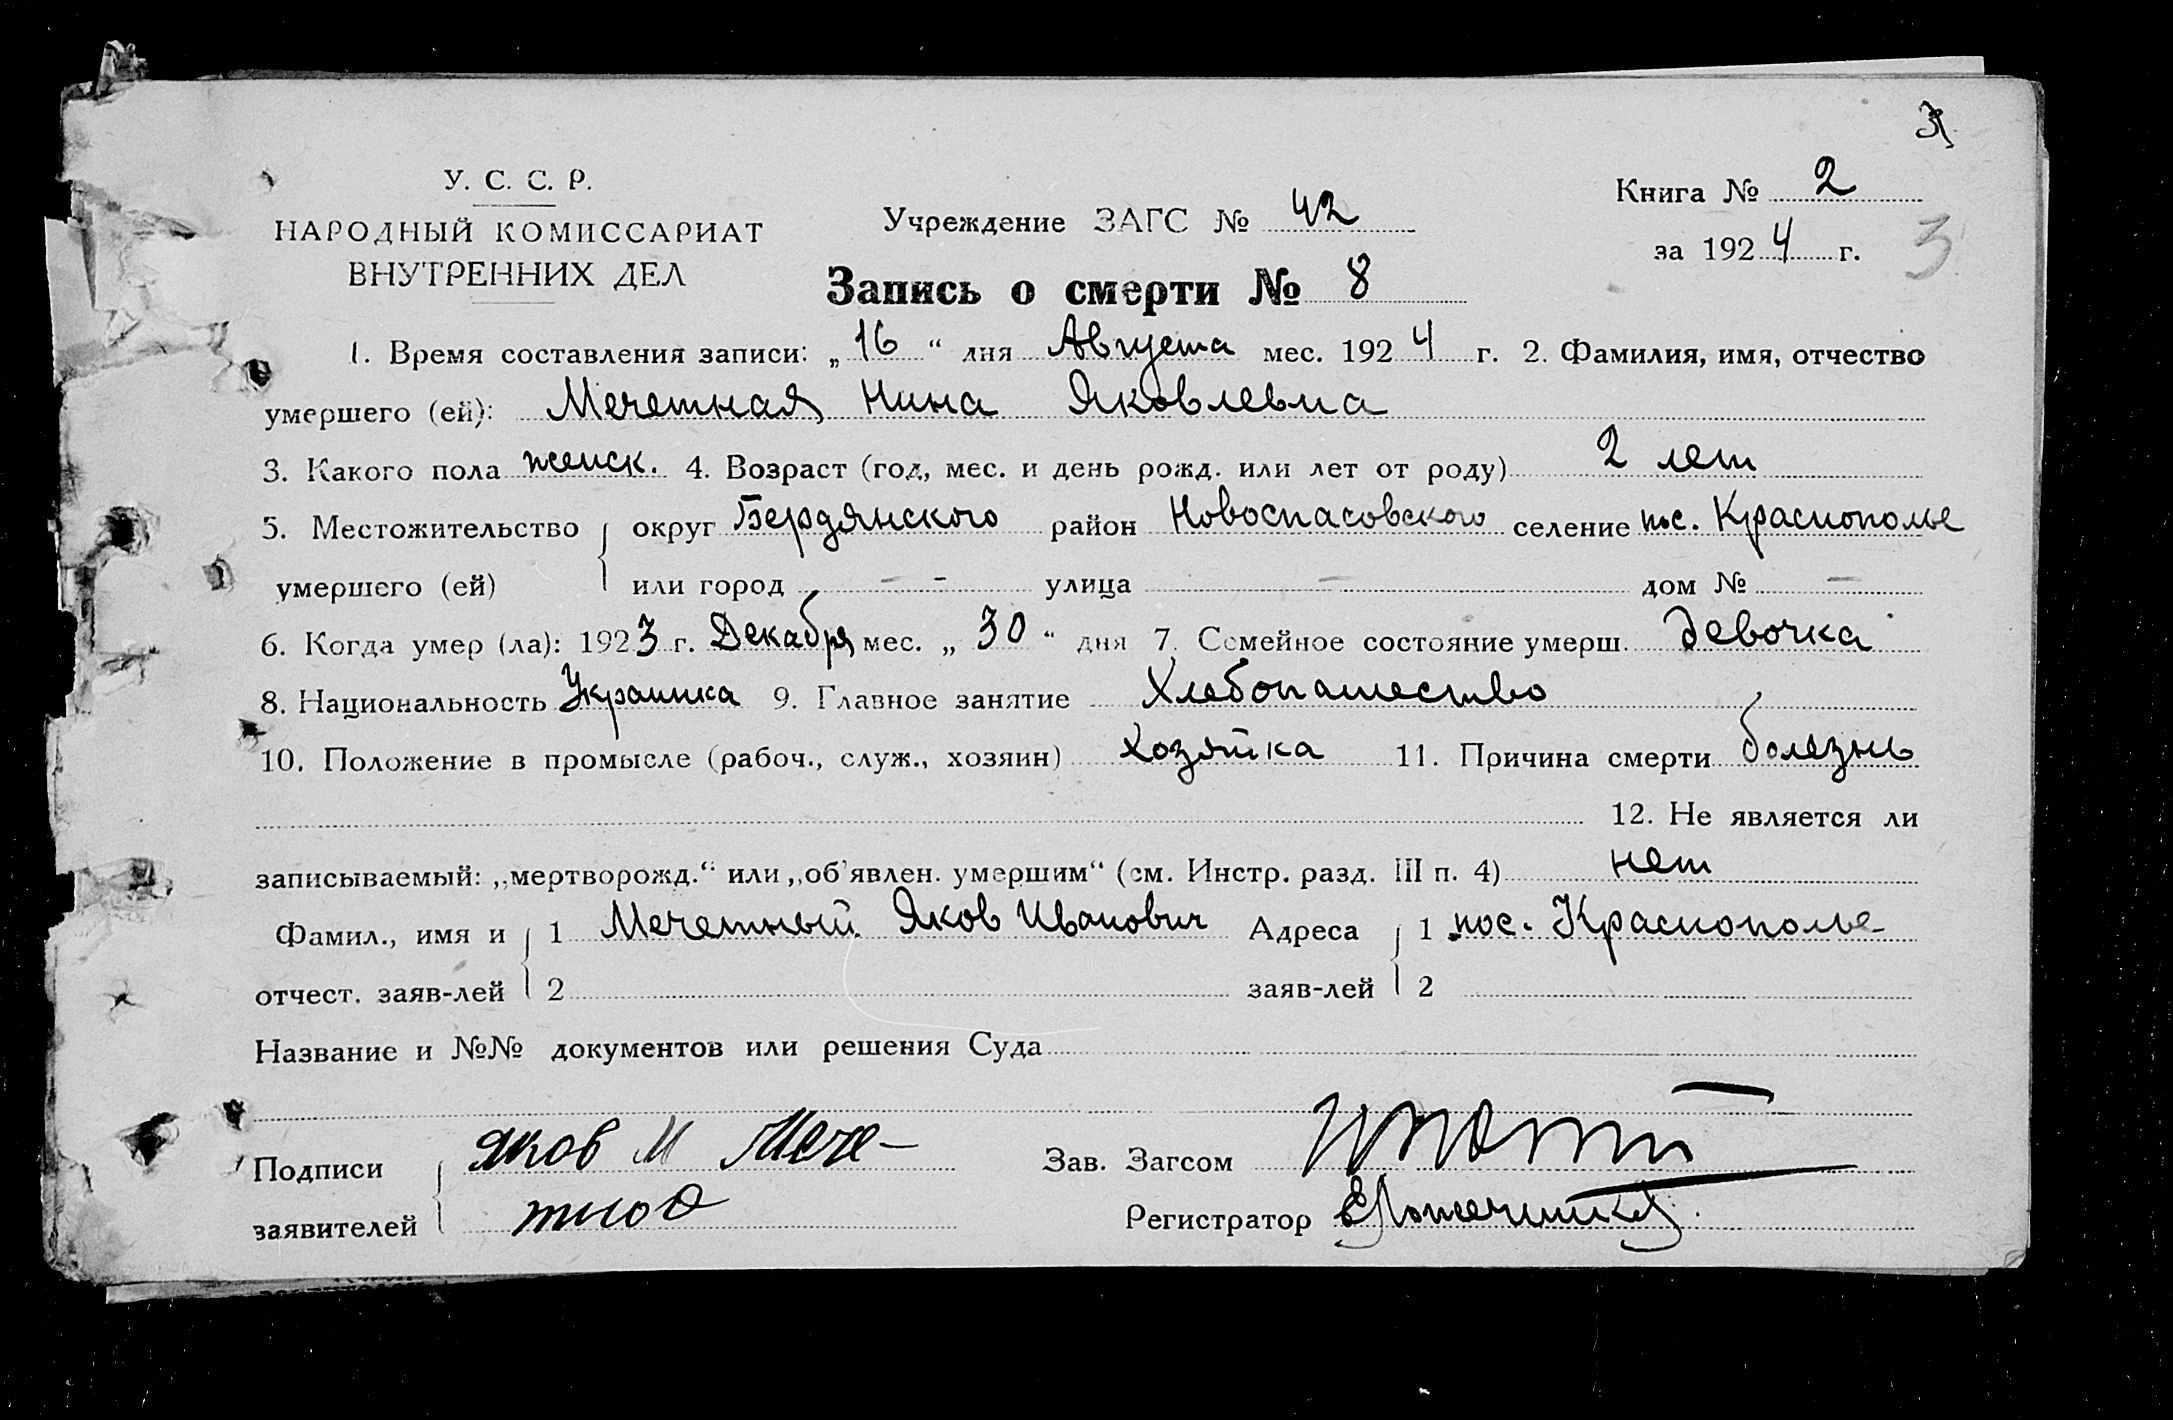 У. С. С. Р.
НАРОДНЫЙ КОМИССАРИАТ
ВНУТРЕННИХ ДЕЛ
Учреждение ЗАГС № 42
Книга № 2
за 1924 г. 3
Запись о смерти № 8
1. Время составления записи: „16“ дня Августа мес. 1924 г. 2. Фамилия, имя, отчество
умершего (ей): Мечетная Нина Яковлевна
3. Какого пола женск. 4. Возраст (год, мес. и день рожд. или лет от роду) 2 лет
5. Местожительство { округ Бердянского район Новоспасовского селение пос. Краснополье
умершего (ей) или город — - улица — дом № —
6. Когда умер (ла): 1923 г. Декабря мес. „30“ дня 7. Семейное состояние умерш. девочка
8. Национальность Украинка 9. Главное занятие Хлебопашество
10. Положение в промысле (рабоч., служ., хозяин) Хозяйка 11. Причина смерти болезнь
12. Не является ли
записываемый: „мертворожд.“ или „об'явлен. умершим“ (см. Инстр. разд. III п. 4) нет
Фамил., имя и { 1 Мечетный Яков Иванович Адреса { 1 пос. Краснополье
отчест. заяв-лей 2 заяв-лей 2
Название и №№ документов или решения Суда
Подписи { Яков И Мече-
заявителей тной
Зав. Загсом
Регистратор